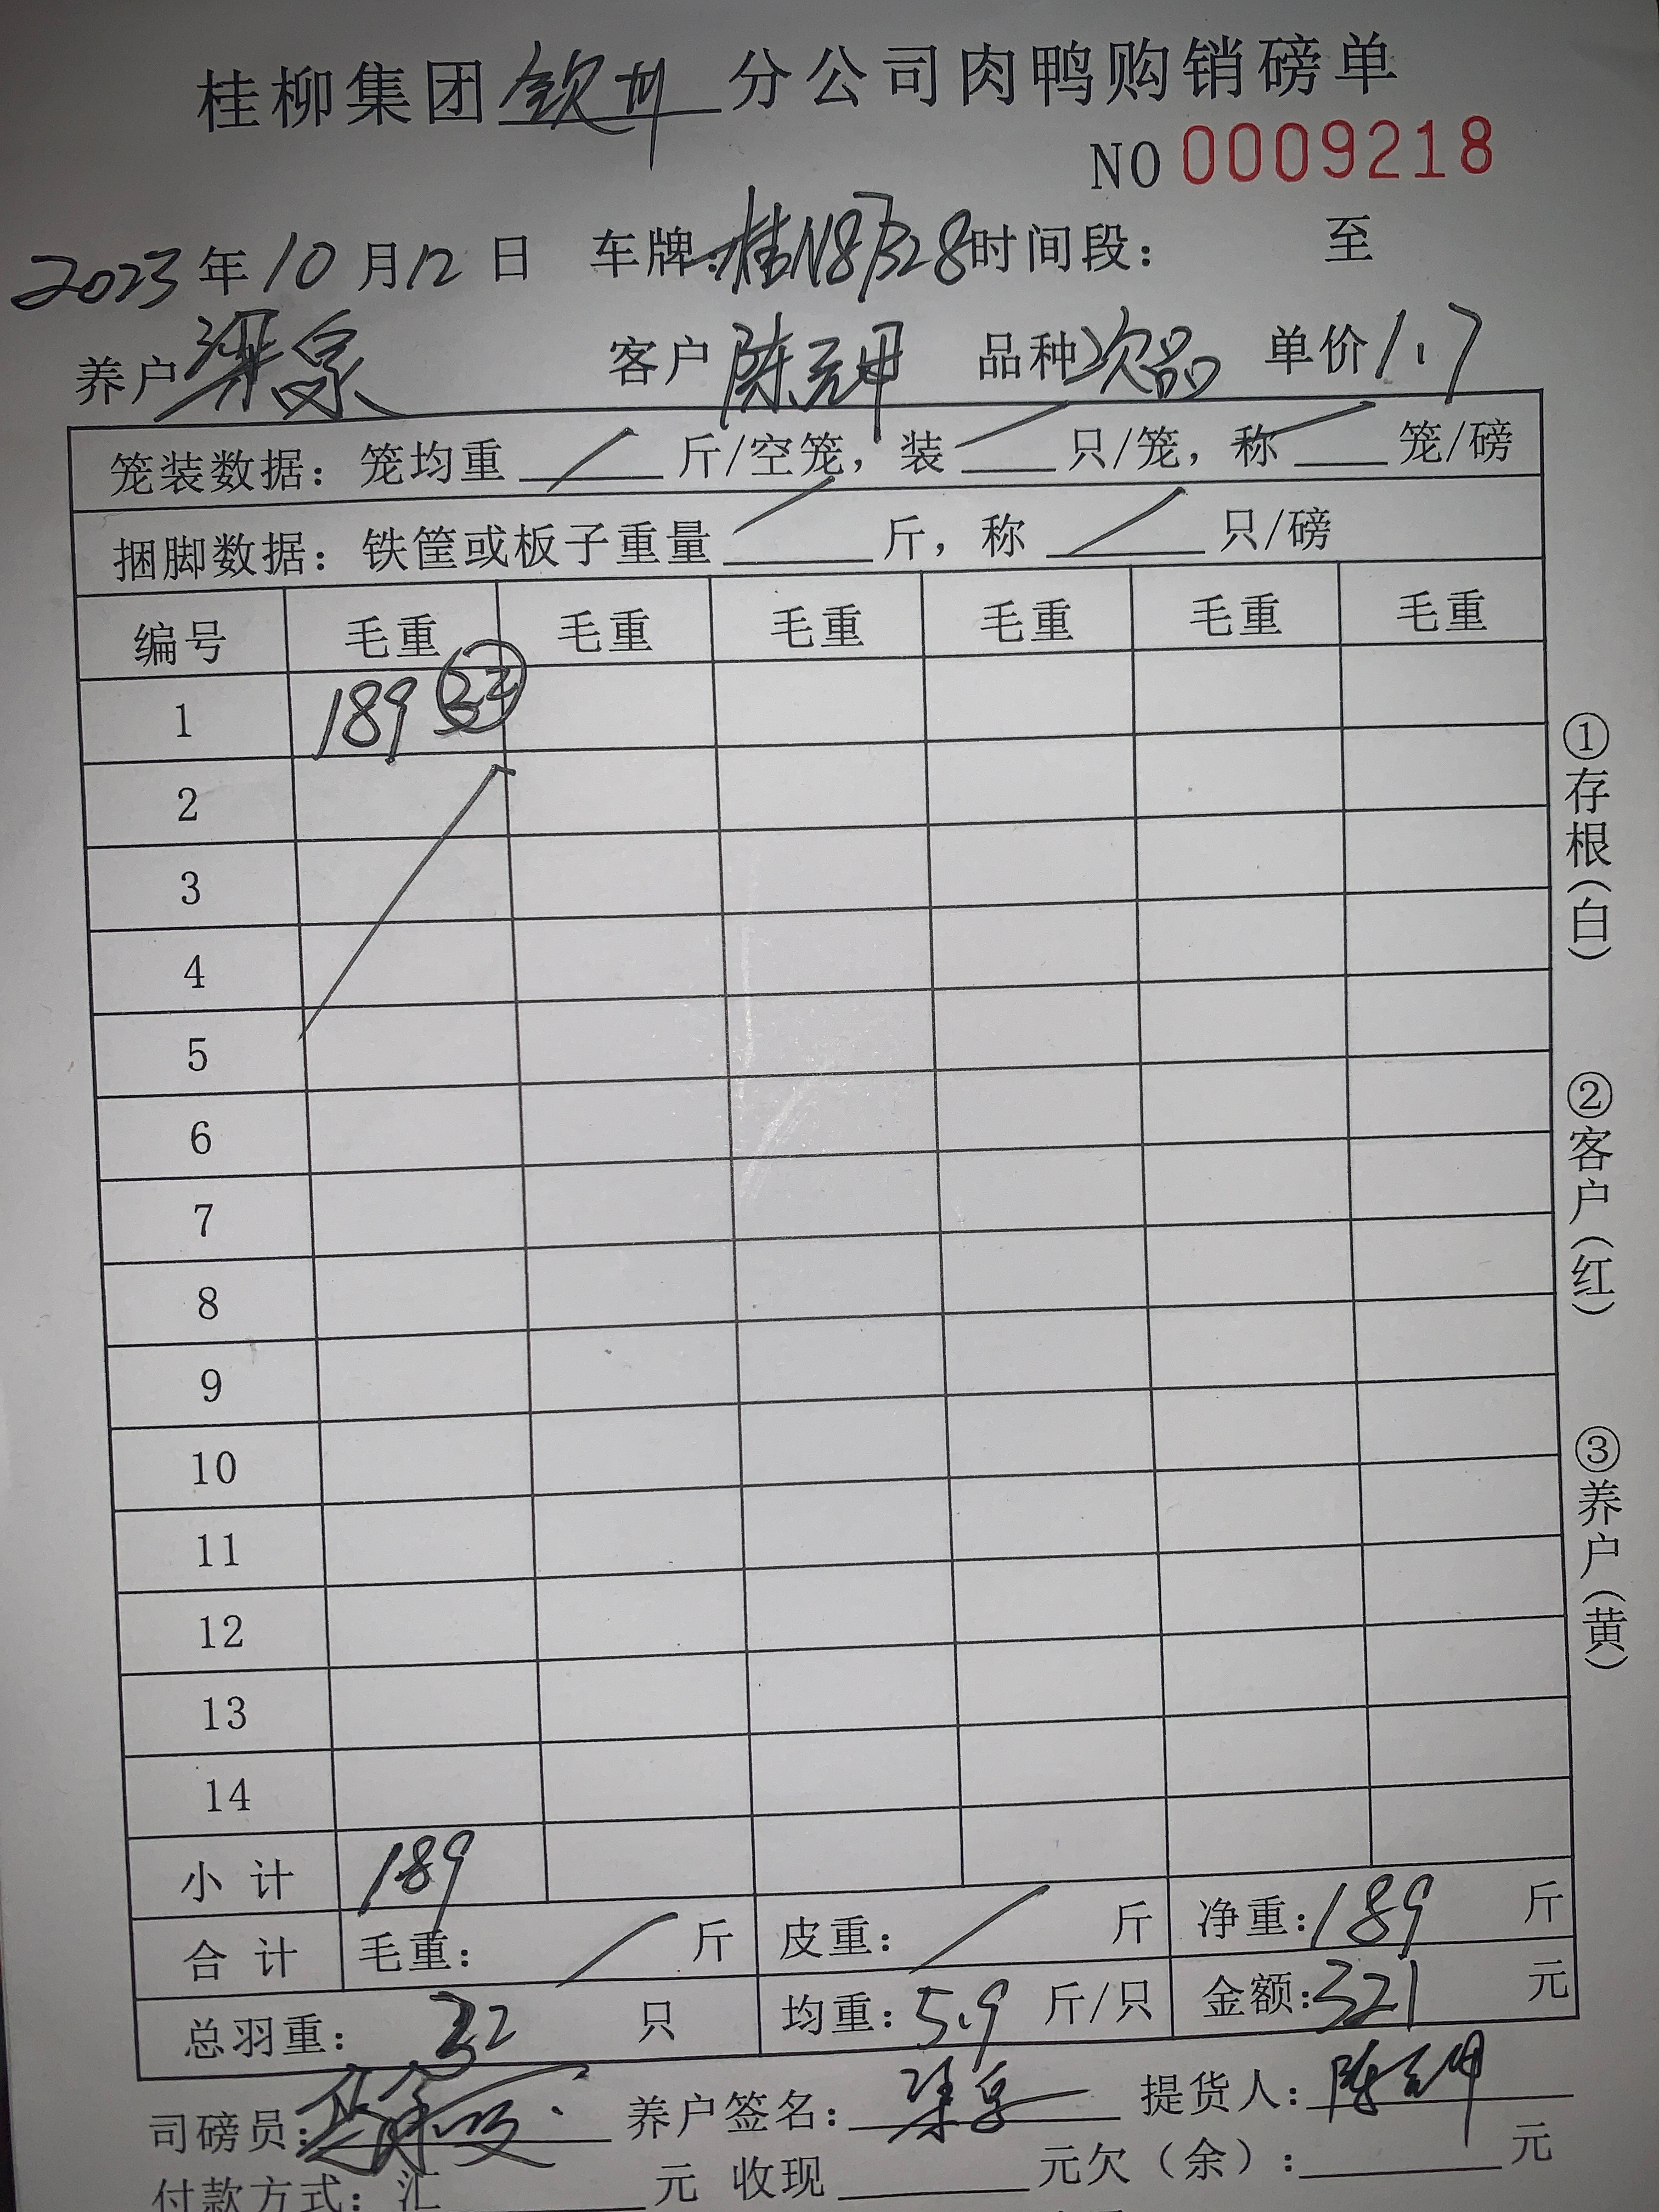 桂柳集团钦州分公司肉鸭购销磅单
NO 0009218
2023年10月12日 车牌:桂N87328时间段: 至
养户梁泉 客户陈元坤 品种次品 单价1.7
笼装数据: 笼均重/斤/空笼, 装/只/笼, 称/笼/磅
捆脚数据: 铁筐或板子重量/斤, 称/只/磅
编号 毛重 毛重 毛重 毛重 毛重 毛重
1 189 32
2
3
4
5
6
7
8
9
10
11
12
13
14
小计 189
合计 毛重: / 斤 皮重: / 斤 净重:189 斤
总羽重: 32 只 均重:5.9 斤/只 金额:321 元
司磅员: 养户签名: 提货人:陈元坤
付款方式: 汇 元 收现 元欠(余): 元
①存根(白)
②客户(红)
③养户(黄)